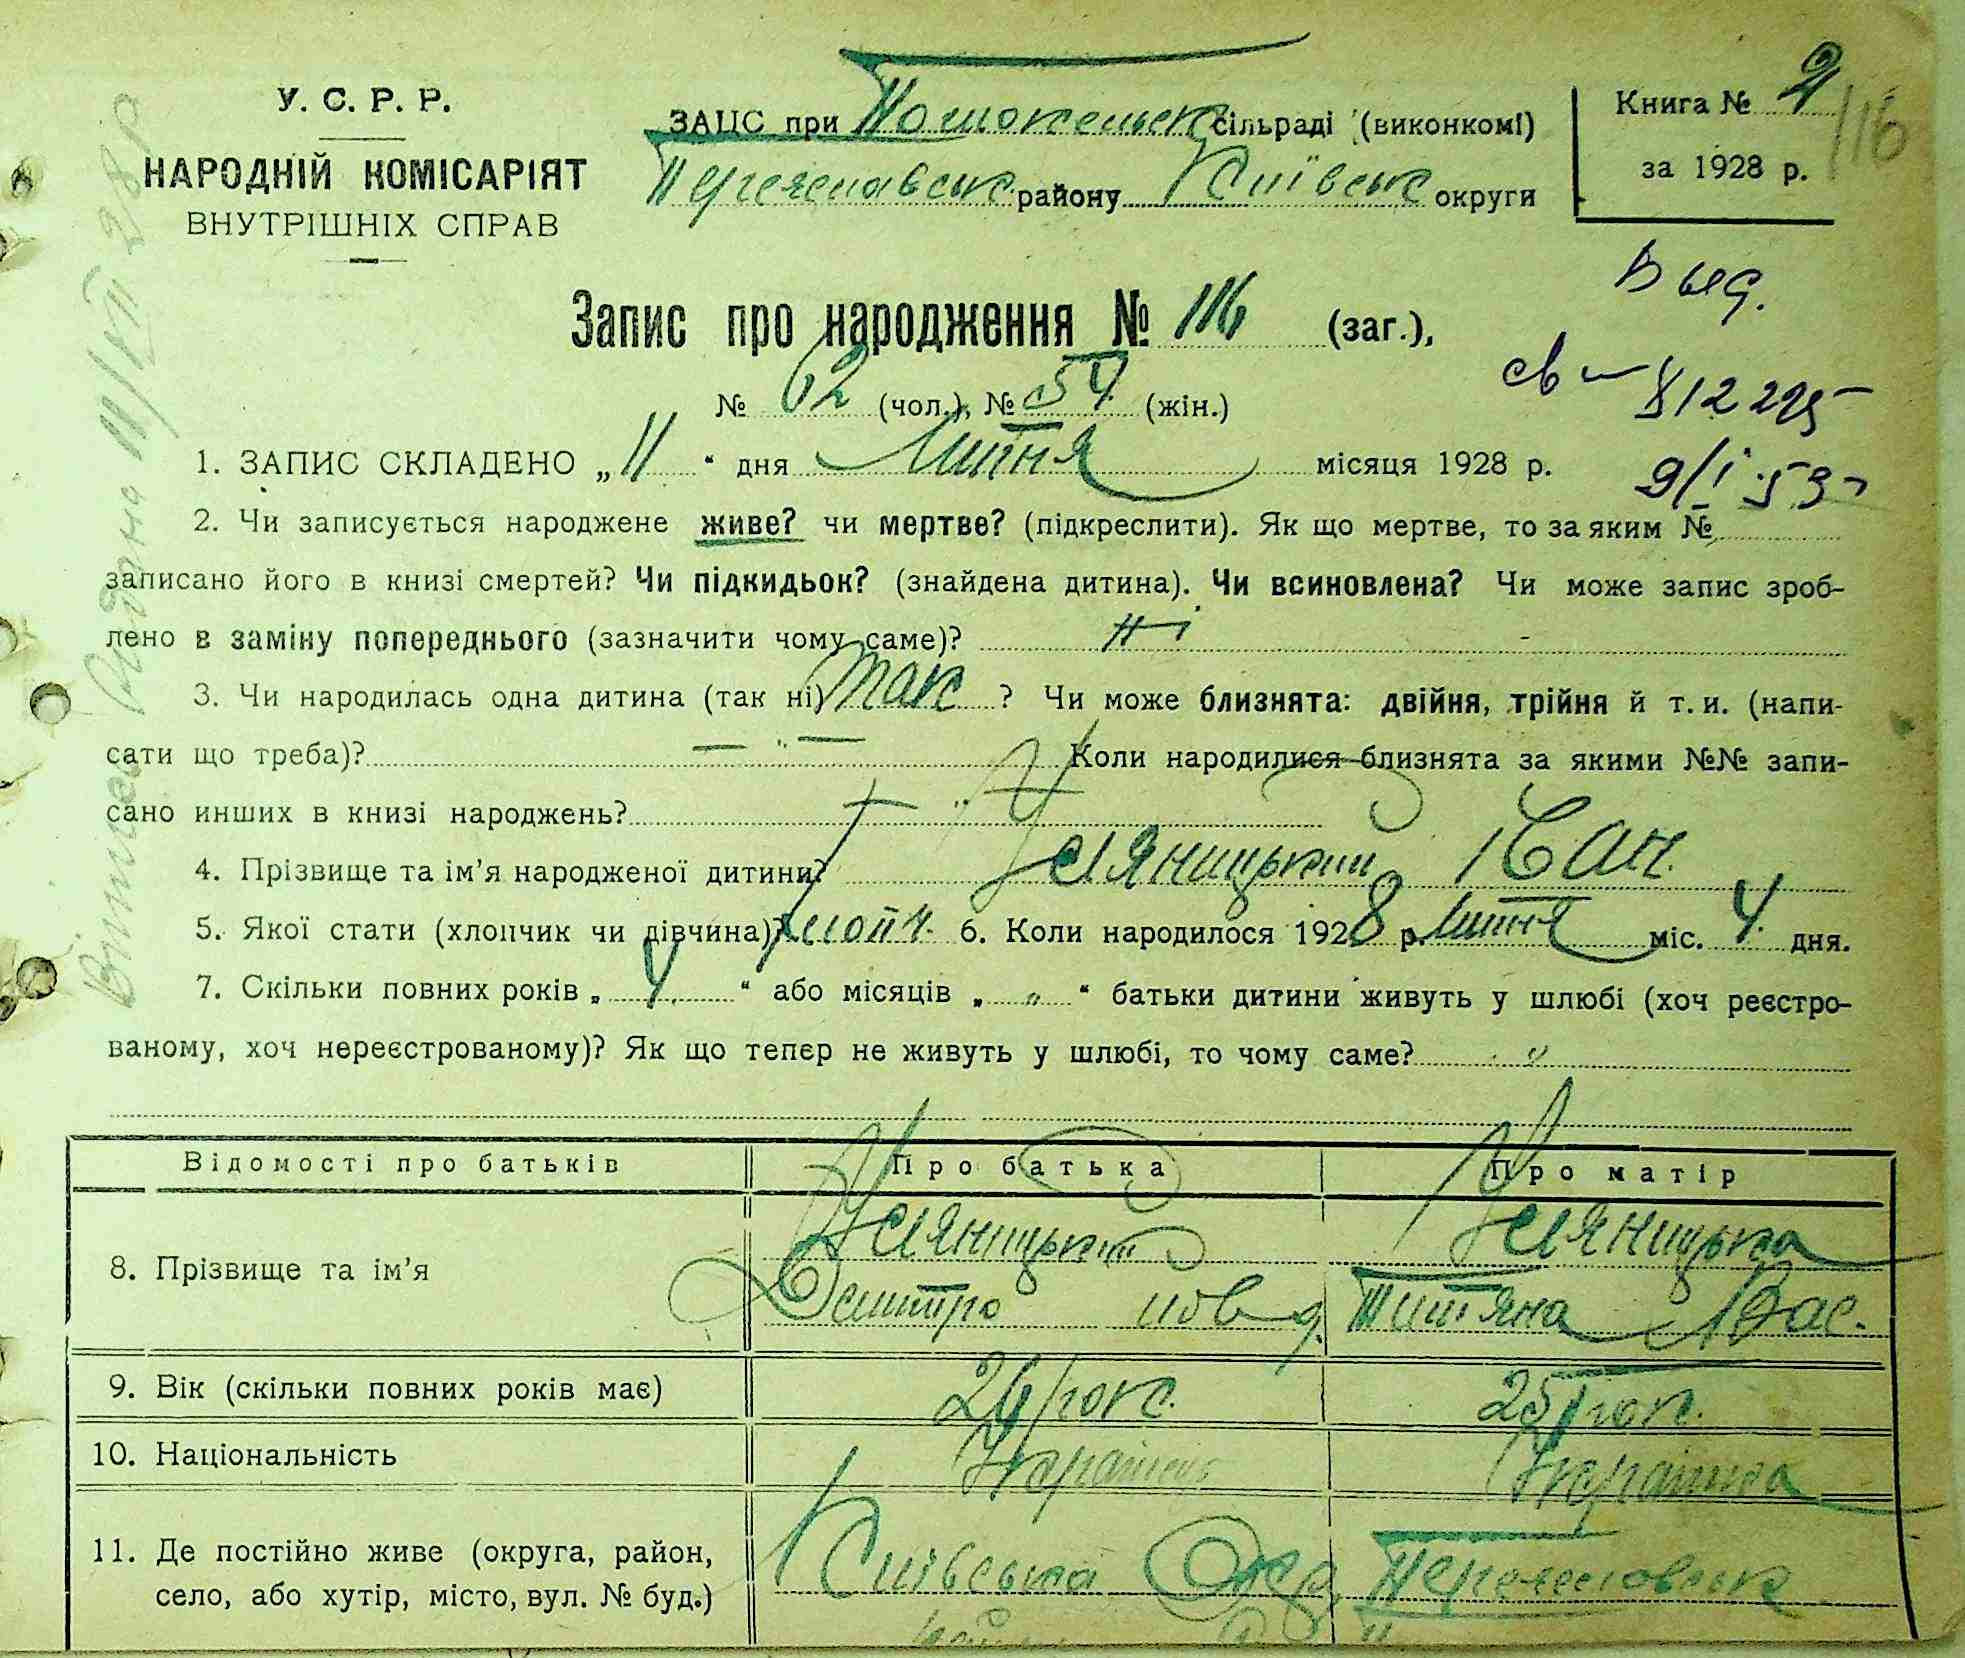 У. С. Р. Р.
НАРОДНІЙ КОМІСАРІЯТ
ВНУТРІШНІХ СПРАВ
ЗАЦС при сільраді (виконкомі)
Переяславськ району Київськ округи
Книга № 2
за 1928 р.
116
Выд.
св — 812295
9/І 53
Запис про народження № 116 (заг.),
№ 62 (чол.), № 54 (жін.)
1. ЗАПИС СКЛАДЕНО „ 11 “ дня Липня місяця 1928 р.
2. Чи записується народжене живе? чи мертве? (підкреслити). Як що мертве, то за яким №
записано його в книзі смертей? Чи підкидьок? (знайдена дитина). Чи всиновлена? Чи може запис зроб-
лено в заміну попереднього (зазначити чому саме)? Ні
3. Чи народилась одна дитина (так ні) Так ? Чи може близнята: двійня, трійня й т. и. (напи-
сати що треба)? — „ — Коли народилися близнята за якими №№ запи-
сано инших в книзі народжень?
4. Прізвище та ім’я народженої дитини? Іван.
5. Якої стати (хлопчик чи дівчина)? хлопч. 6. Коли народилося 1928 р. Липня міс. 4 дня.
7. Скільки повних років „ 4 “ або місяців „ „ “ батьки дитини живуть у шлюбі (хоч реєстро-
ваному, хоч нереєстрованому)? Як що тепер не живуть у шлюбі, то чому саме? „
Відомості про батьків Про батька Про матір
8. Прізвище та ім’я
Дмитро Титяна Вас.
9. Вік (скільки повних років має) 26 рок. 25 рок.
10. Національність Українець Українка
11. Де постійно живе (округа, район, Київська Окр. Переяславськ
село, або хутір, місто, вул. № буд.)